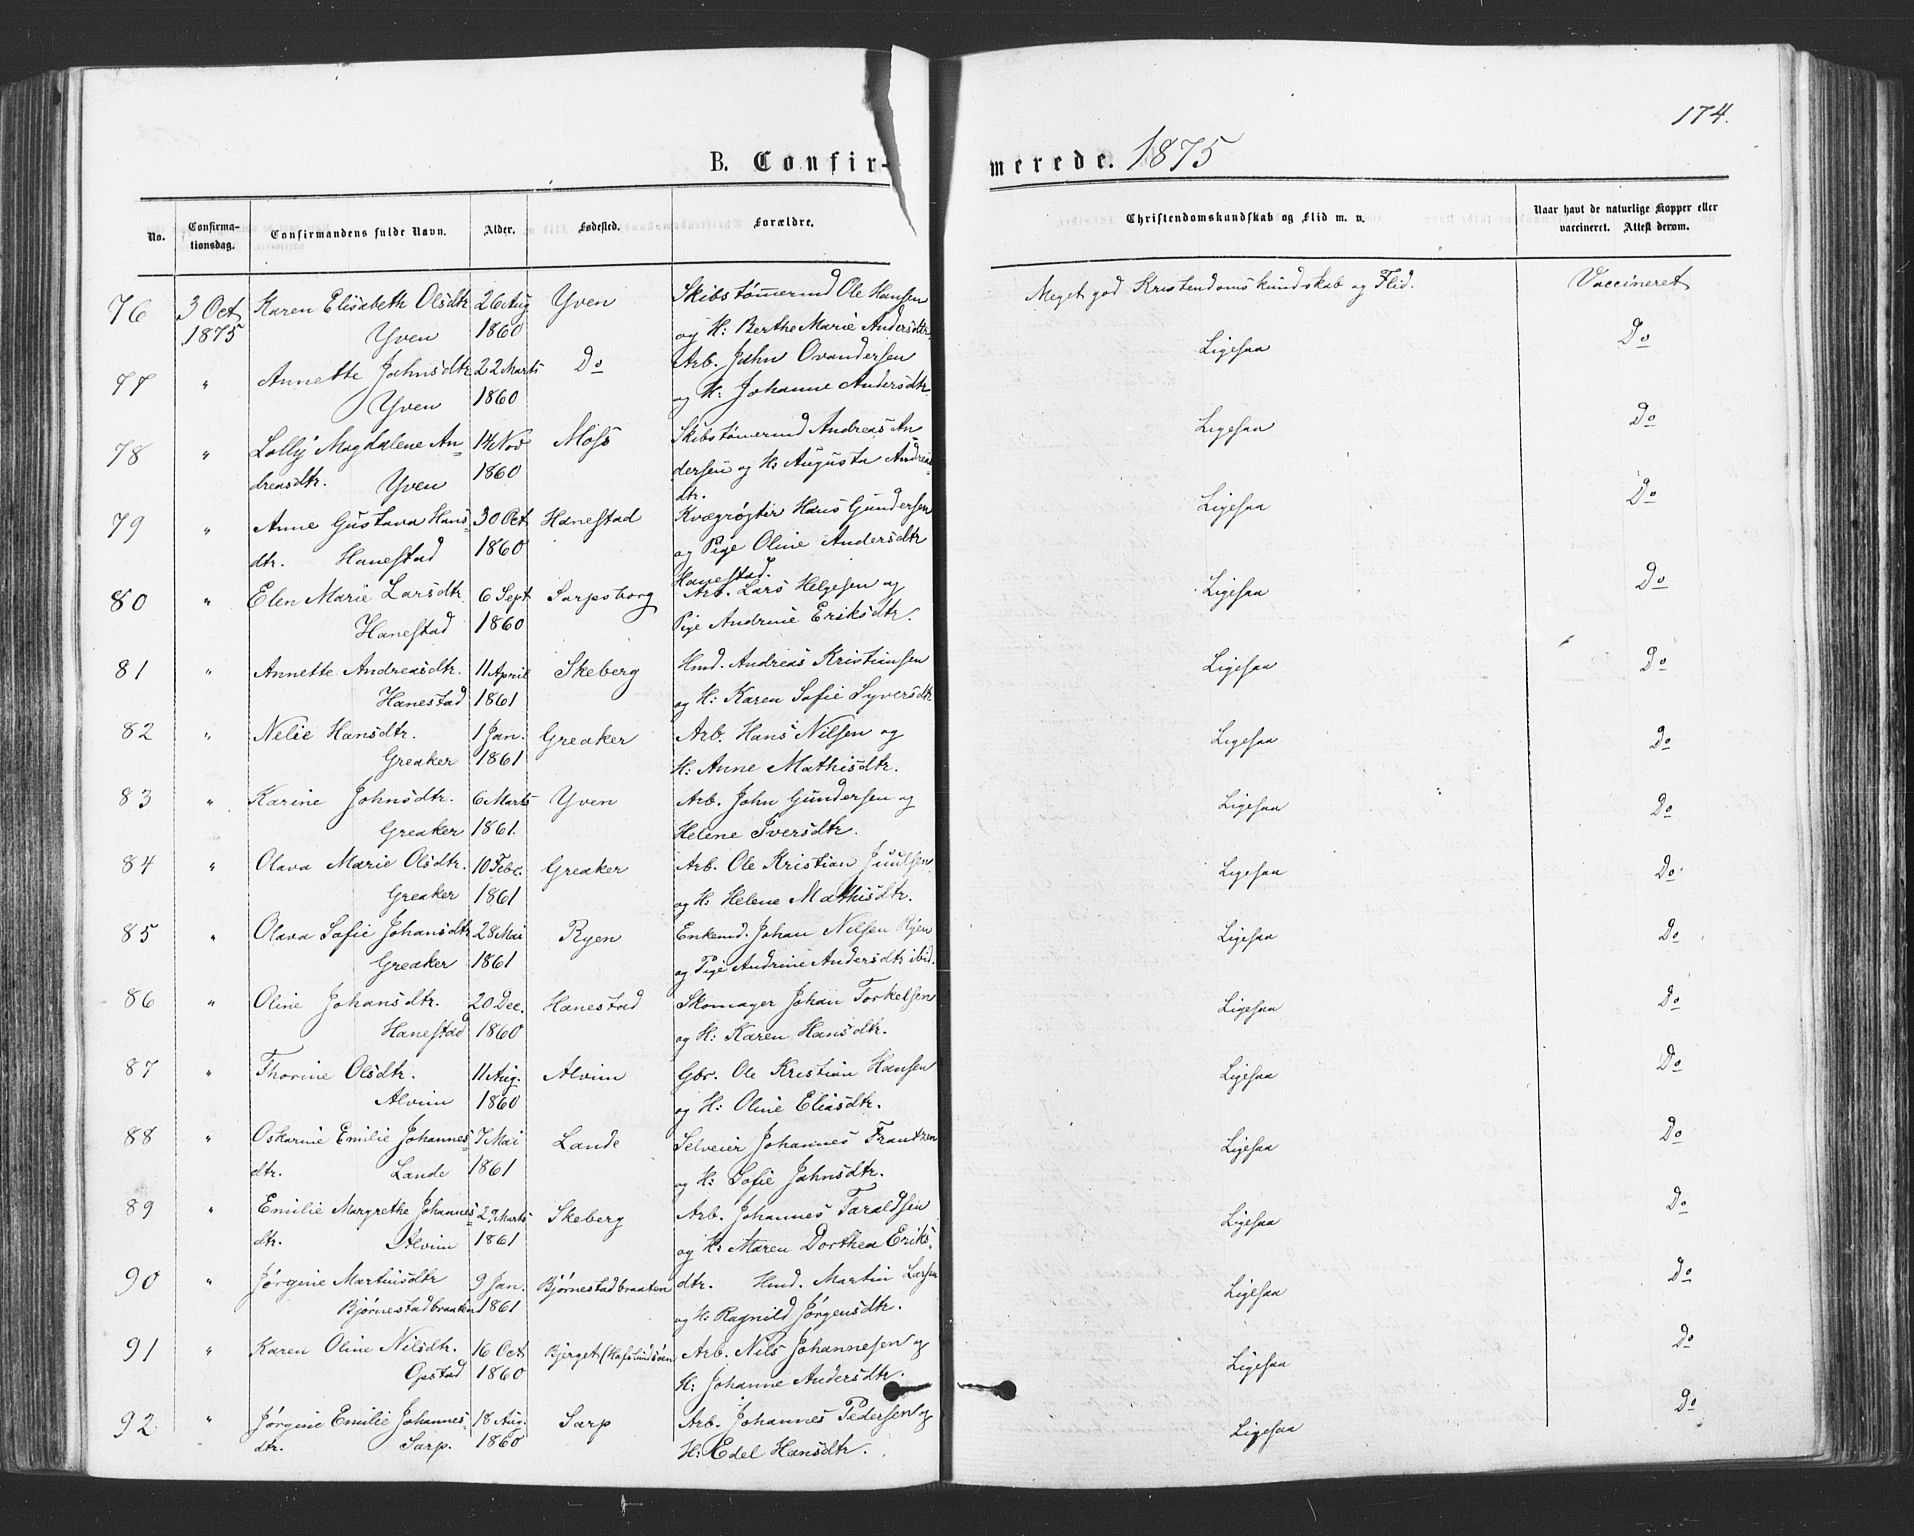 174.
B. Confir- merede. 1875
No. Confirmationsdag. Confirmandens fulde Navn. Alder. Fødested. Forældre. Christendomskundskab og Flid m. v. Naar havt de naturlige Kopper eller vaccineret. Attest derom.
76 3 Oct Karen Elisabeth Olsdtr. 26 Aug Yven Skibstømermd Ole Hansen Meget god Kristendomskundskab og Flid. Vaccineret
1875 Yven 1860 og H: Berthe Marie Andersdtr.
77 " Annette Jahnsdtr. 22 Marts Do Arb. Jahn Ovandersen Ligesaa Do
Yven 1860 og H: Johanne Andersdtr.
78 " Lolly Magdalene An= 14 Nov Moss Skibstømermd Andreas An= Ligesaa Do
dreasdtr. Yven 1860 dersen og H: Augusta Andreas=
dtr.
79 " Anne Gustava Hans= 30 Oct Hanestad Kvægrøgter Hans Gundersen Ligesaa Do
dtr. Hanestad 1860 og Pige Oline Andersdtr
Hanestad.
80 " Elen Marie Larsdtr. 6 Sept Sarpsborg Arb. Lars Helgesen og Ligesaa Do
Hanestad 1860 Pige Andrine Eriksdtr.
81 " Annette Andreasdtr. 11 April Skeberg Hmd. Andreas Kristiansen Ligesaa Do
Hanestad 1861 og H: Karen Sofie Syversdtr
82 " Nelie Hansdtr. 1 Jan. Greaker Arb. Hans Nilsen og Ligesaa Do
Greaker 1861 H: Anne Mathisdtr.
83 " Karine Johnsdtr. 6 Marts Yven Arb. John Gundersen og Ligesaa Do
Greaker 1861. Helene Iversdtr.
84 " Olava Marie Olsdtr. 10 Febr. Greaker Arb. Ole Kristian Juulsen Ligesaa Do
Greaker 1861 og H: Helene Mathisdtr.
85 " Olava Sofie Johansdtr 28 Mai Ryen Enkemd. Johan Nilsen Ryen Ligesaa Do
Greaker 1861 og Pige Andrine Andersdtr ibid.
86 " Oline Johansdtr. 20 Dec. Hanestad Skomager Johan Torkelsen Ligesaa Do
Hanestad 1860 og H: Karen Hansdtr.
87 " Thorine Olsdtr. 11 Aug. Alvim Gbr. Ole Kristian Hansen Ligesaa Do
Alvim 1860 og H: Oline Eliasdtr.
88 " Oskarine Emilie Johannes= 7 Mai Lande Selveier Johannes Frantzen Ligesaa Do
dtr. Lande 1861 og H: Sofie Jahnsdtr.
89 " Emilie Margrethe Johannes= Marts Skeberg Arb. Johannes Taraldsen Ligesaa Do
dtr. Alvim 1861 og H: Maren Dorthea Eriks=
90 " Jørgine Martinsdtr 9 Jan. Bjørnestadbraaten dtr. Hmd. Martin Larsen Ligesaa Do
Bjørnestadbraaten 1861 og H: Ragnild Jørgensdtr.
91 " Karen Oline Nilsdtr. 16 Oct Bjerget (Hafslundsøen Arb. Nils Johannesen og Ligesaa Do
Opstad 1860 H: Johanne Andersdtr.
92 " Jørgine Emilie Johannes= 18 Aug. Sarp Arb. Johannes Pedersen og Ligesaa Do
dtr. Sarp. 1860 H: Edel Hansdtr.